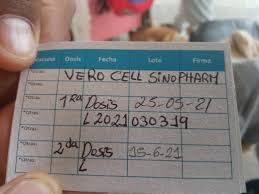 Vacuna Dosis Fecha Lote Firma
*Otras: VERO CELL SINOPHARM
*Otras: 1ra Dosis 25-05-21
*Otras: L2021030319
*Otras: 2da Dosis 15-6-21
*Otras: L